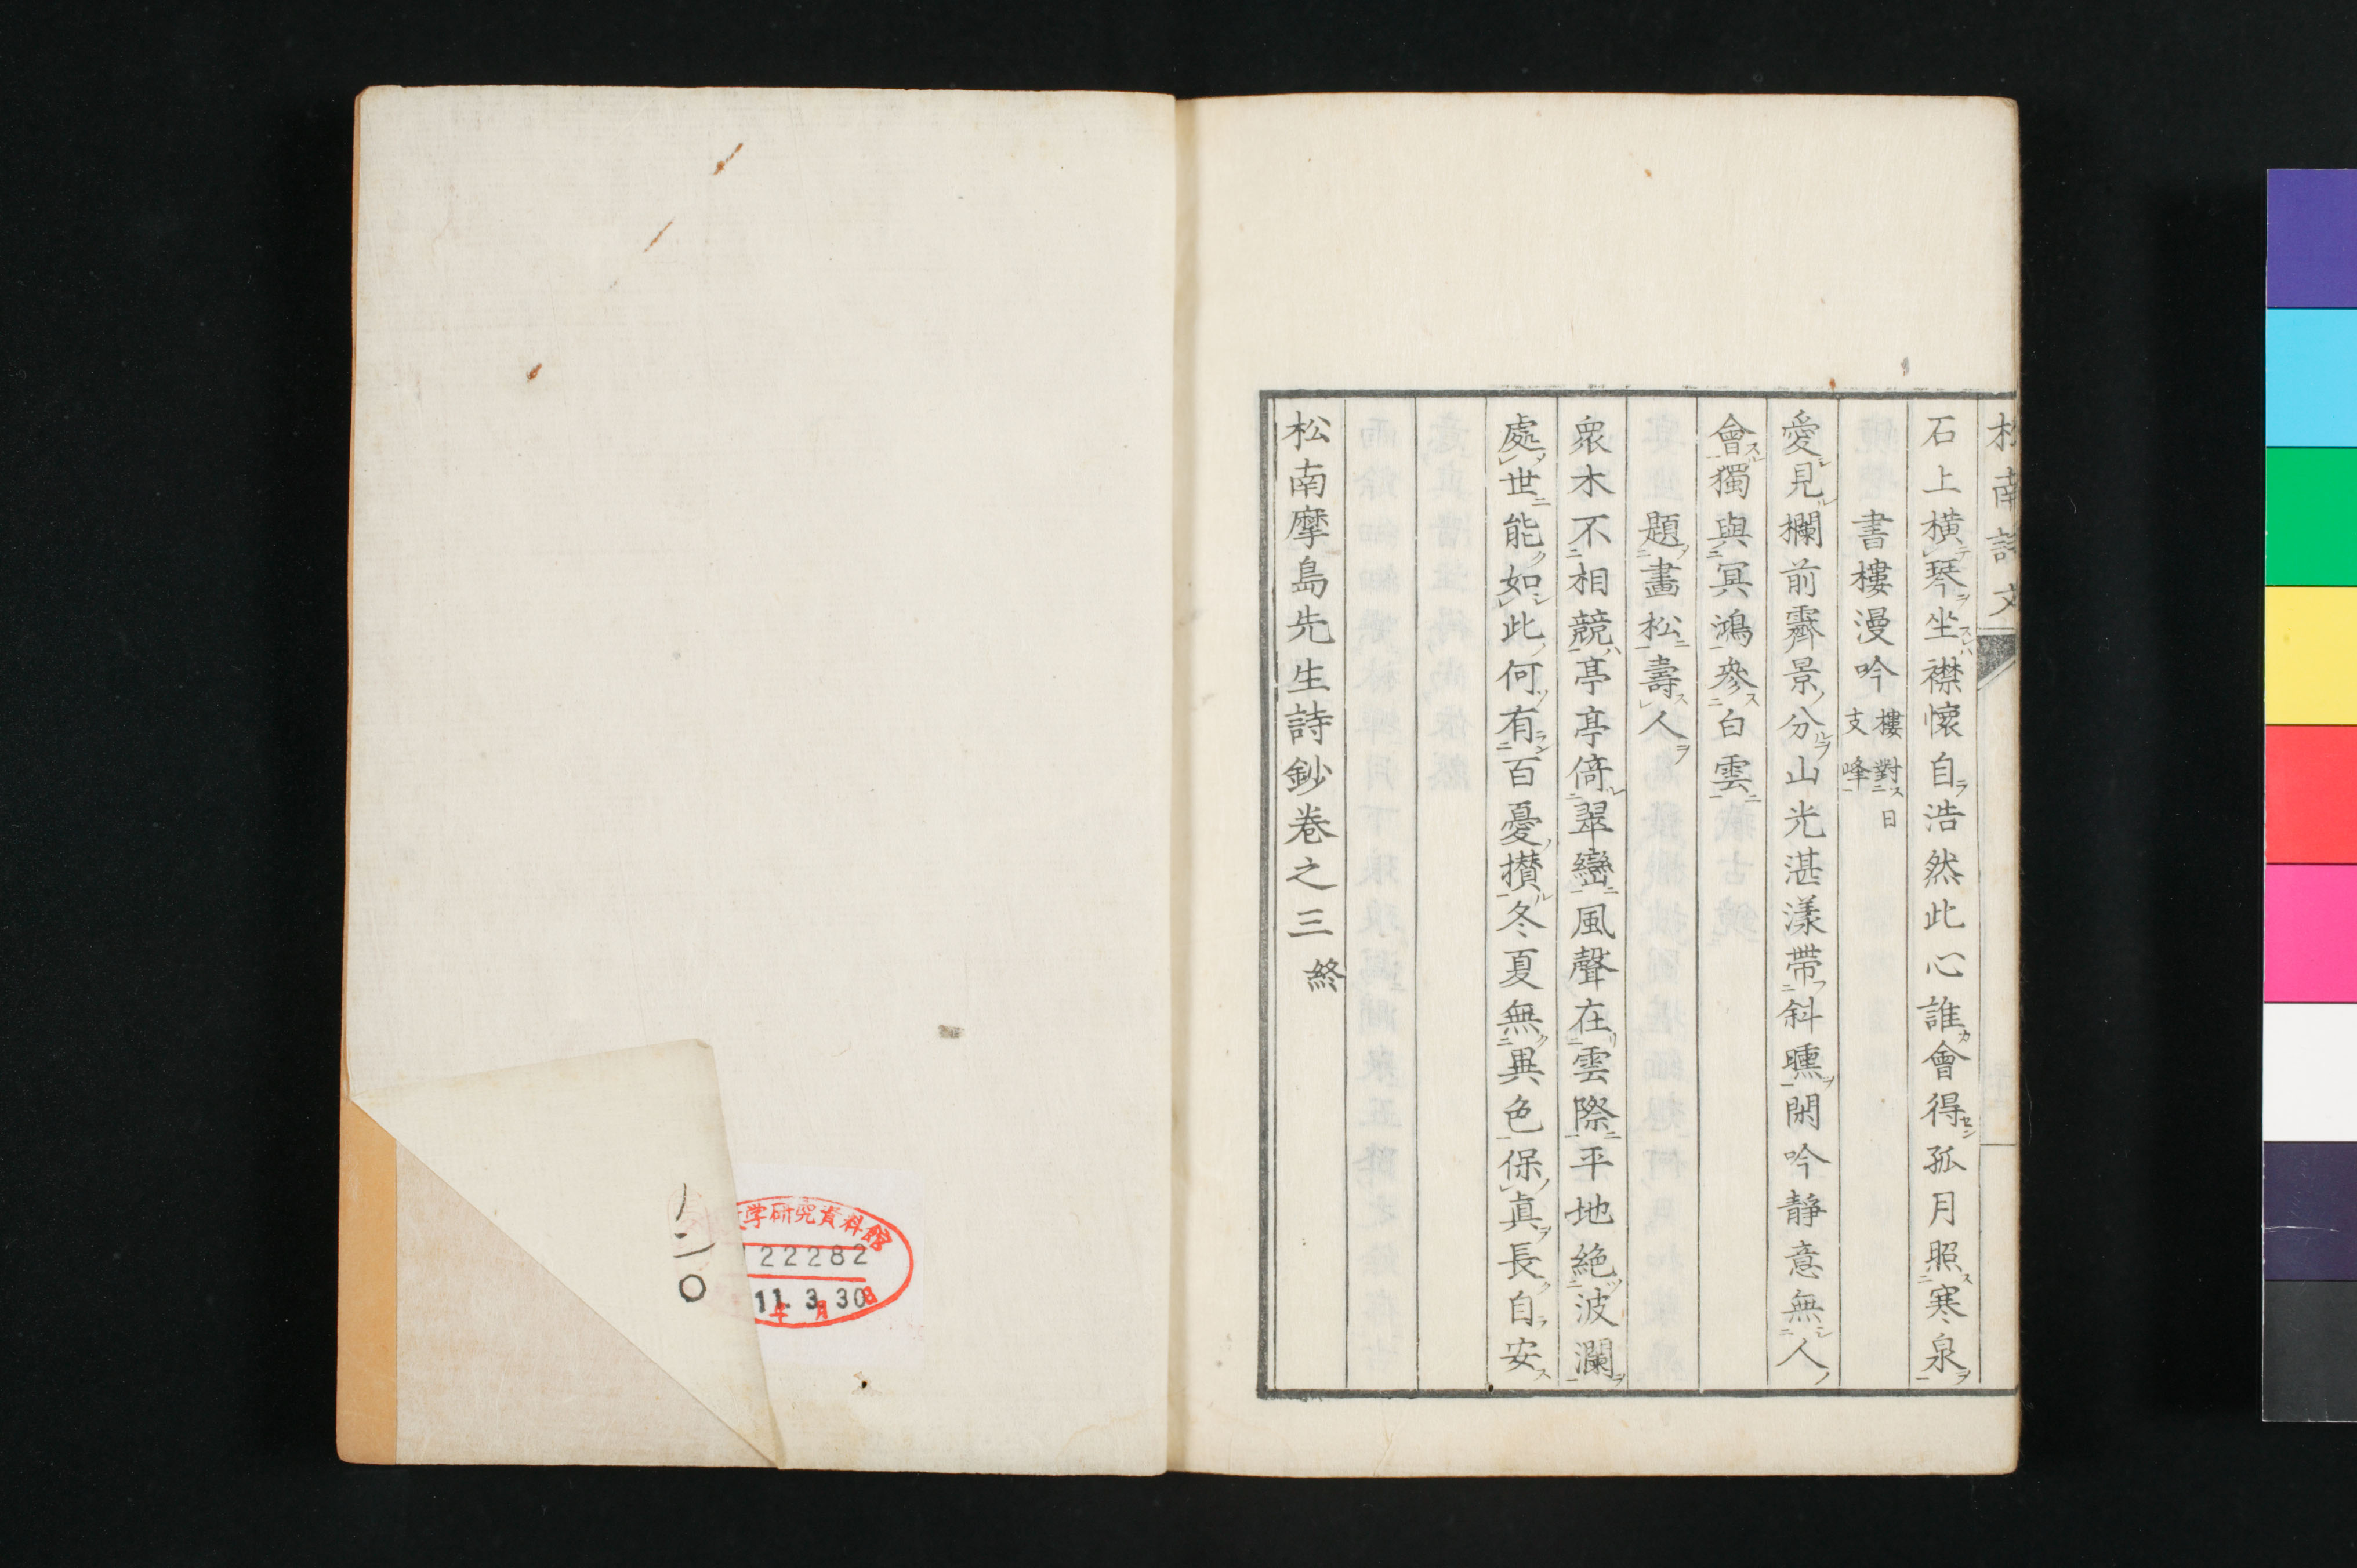 松南詩文
石上横琴坐襟懷自浩然此心誰會得孤月照寒泉
書樓漫吟 樓對日支峰
愛見欄前霽景分山光湛漾帶斜曛閑吟靜意無人
會獨與冥鴻參白雲
題畫松壽人
衆木不相競亭亭倚翠巒風聲在雲際平地絶波瀾
處世能如此何有百憂攅冬夏無異色保眞長自安
松南摩島先生詩鈔卷之三 終
学研究資料館
22282
11.3.30
年月日
一二〇